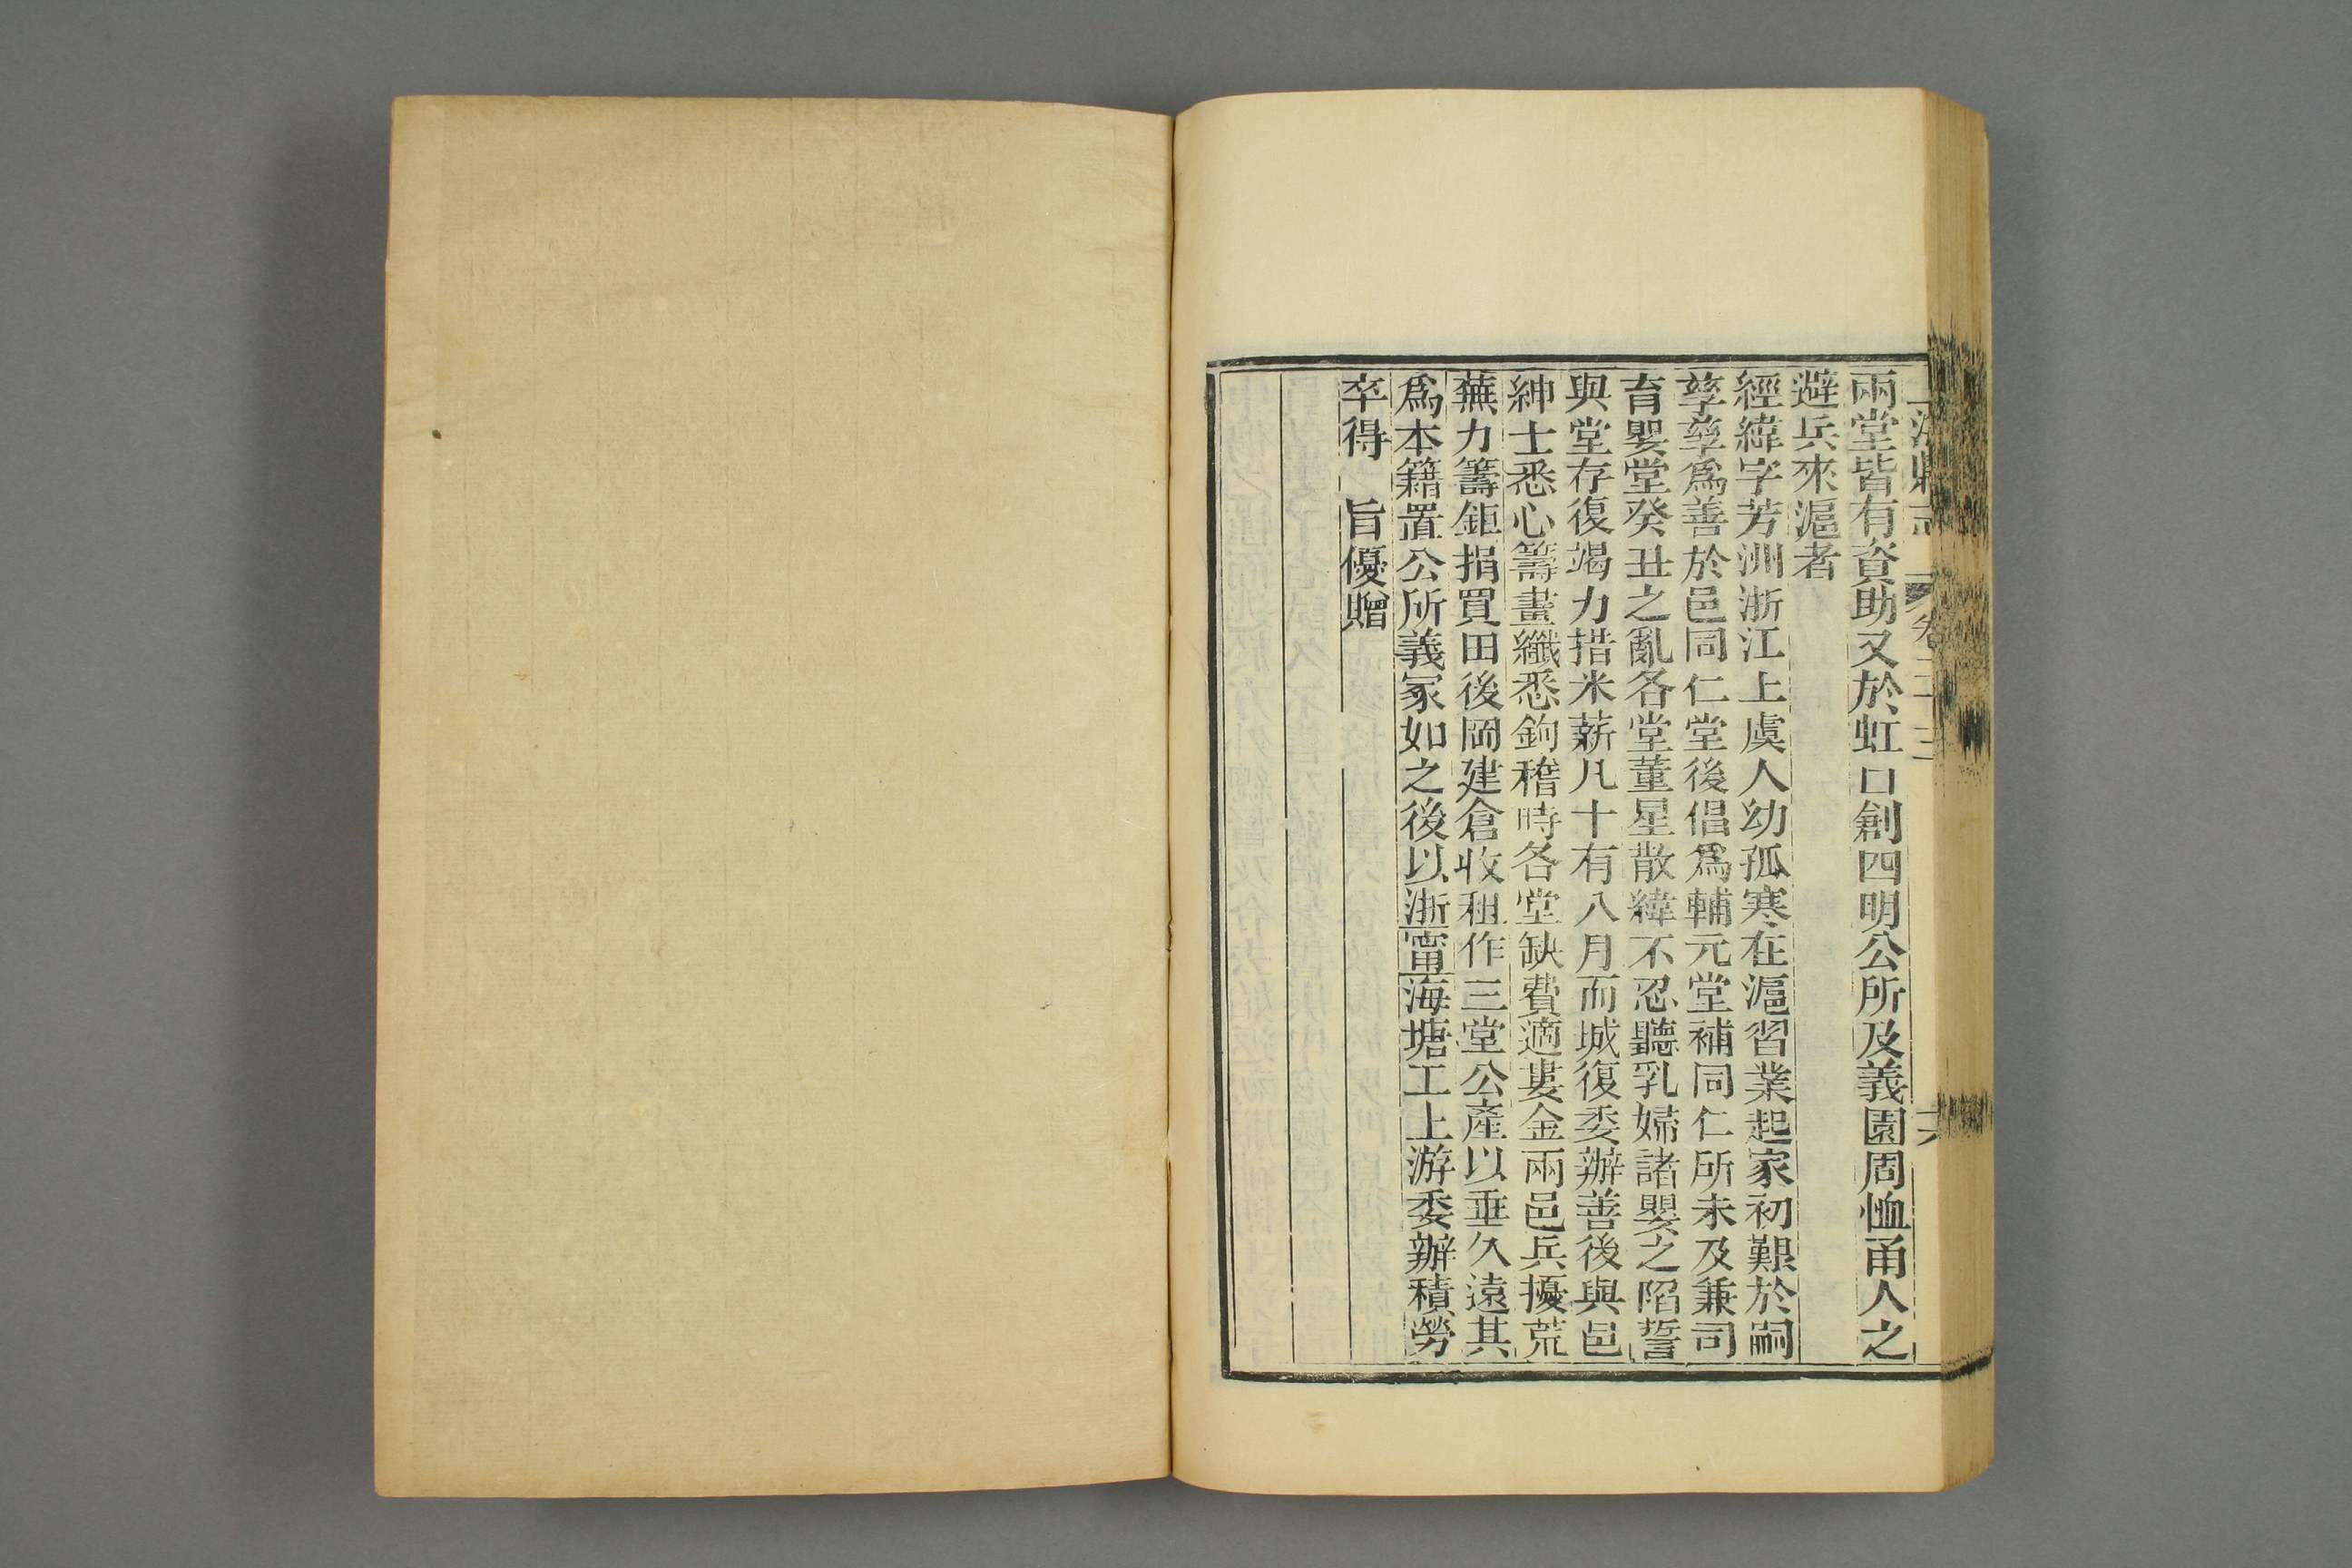 上海縣志 卷二十三 六
兩堂皆有資助又於虹口創四明公所及義園周恤甬人之
避兵來滬者
經緯字芳洲浙江上虞人幼孤寒在滬習業起家初艱於嗣
孳孳爲善於邑同仁堂後倡爲輔元堂補同仁所未及兼司
育嬰堂癸丑之亂各堂董星散緯不忍聽乳婦諸嬰之陷誓
與堂存復竭力措米薪凡十有八月而城復委辦善後與邑
紳士悉心籌畫纖悉鉤稽時各堂缺費適婁金兩邑兵擾荒
蕪力籌鉅捐買田後岡建倉收租作三堂公產以垂久遠其
爲本籍置公所義冢如之後以浙甯海塘工上游委辦積勞
卒得 旨優贈